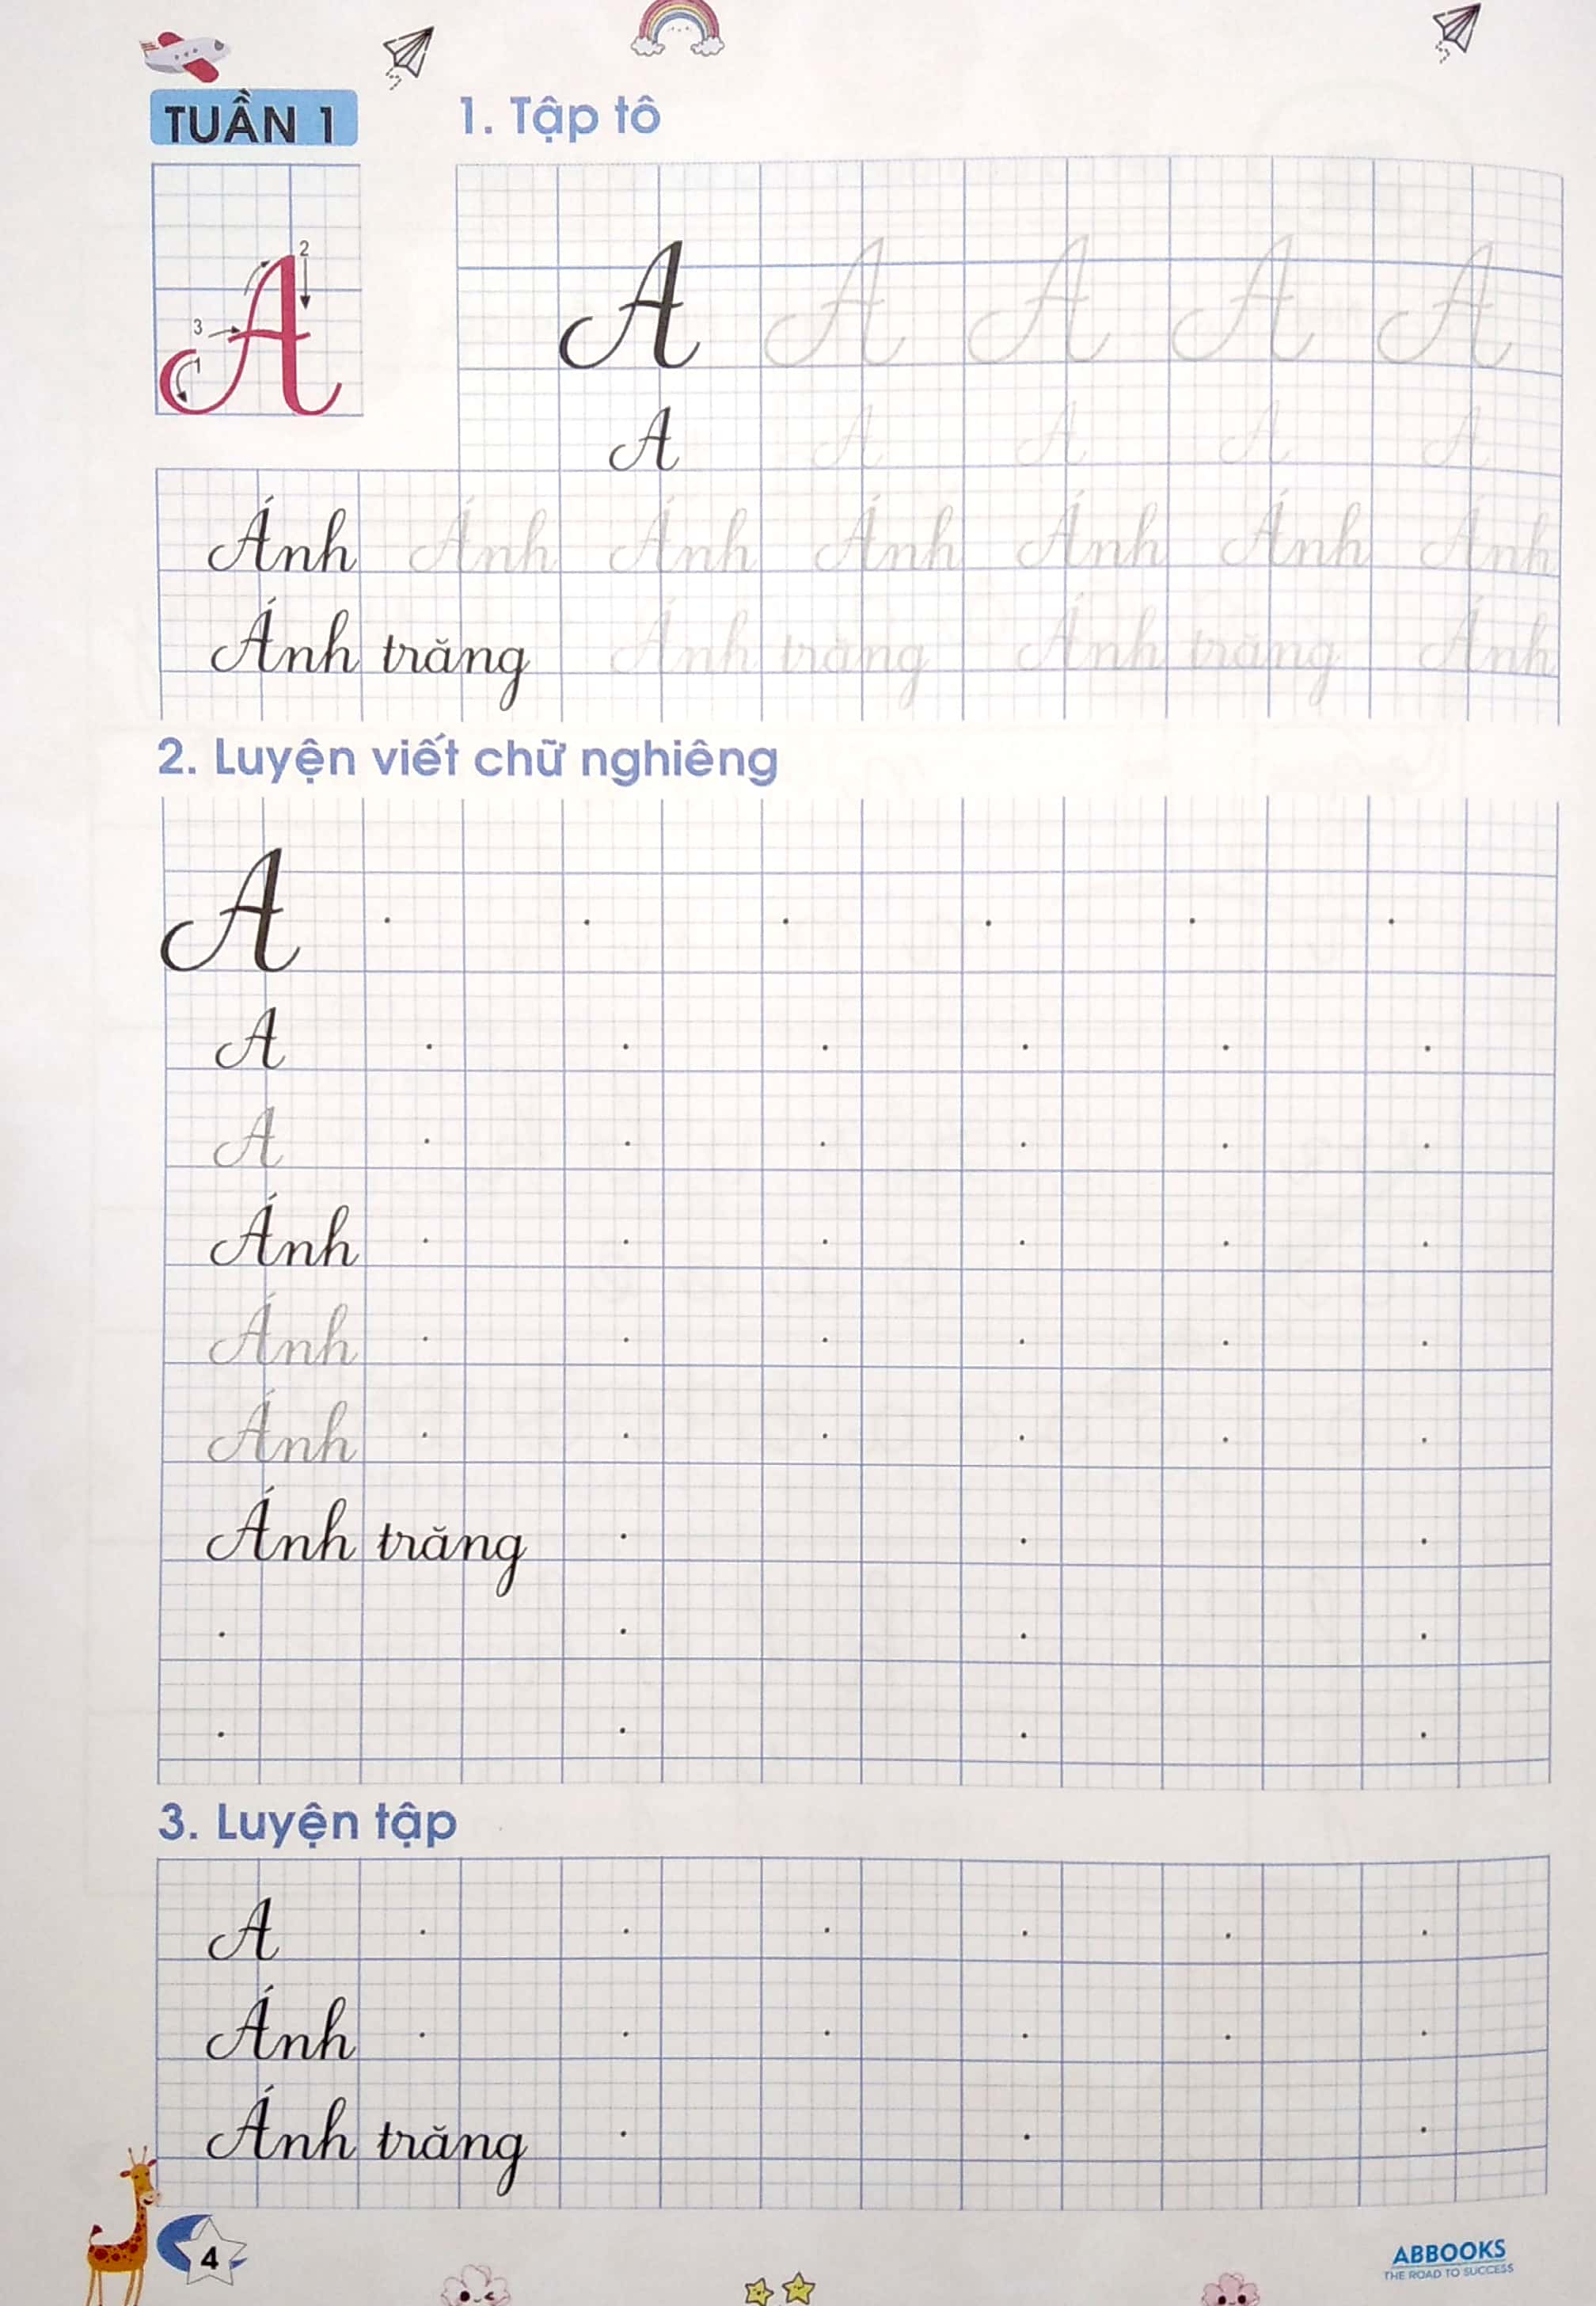 TUẦN 1
1. Tập tô
2
3
1
A
A A A A A
A A A A A
Ánh Ánh Ánh Ánh Ánh Ánh Ánh
Ánh trăng Ánh trăng Ánh trăng Ánh
2. Luyện viết chữ nghiêng
A
A
A
Ánh
Ánh
Ánh
Ánh trăng
3. Luyện tập
A
Ánh
Ánh trăng
4
ABBOOKS
THE ROAD TO SUCCESS